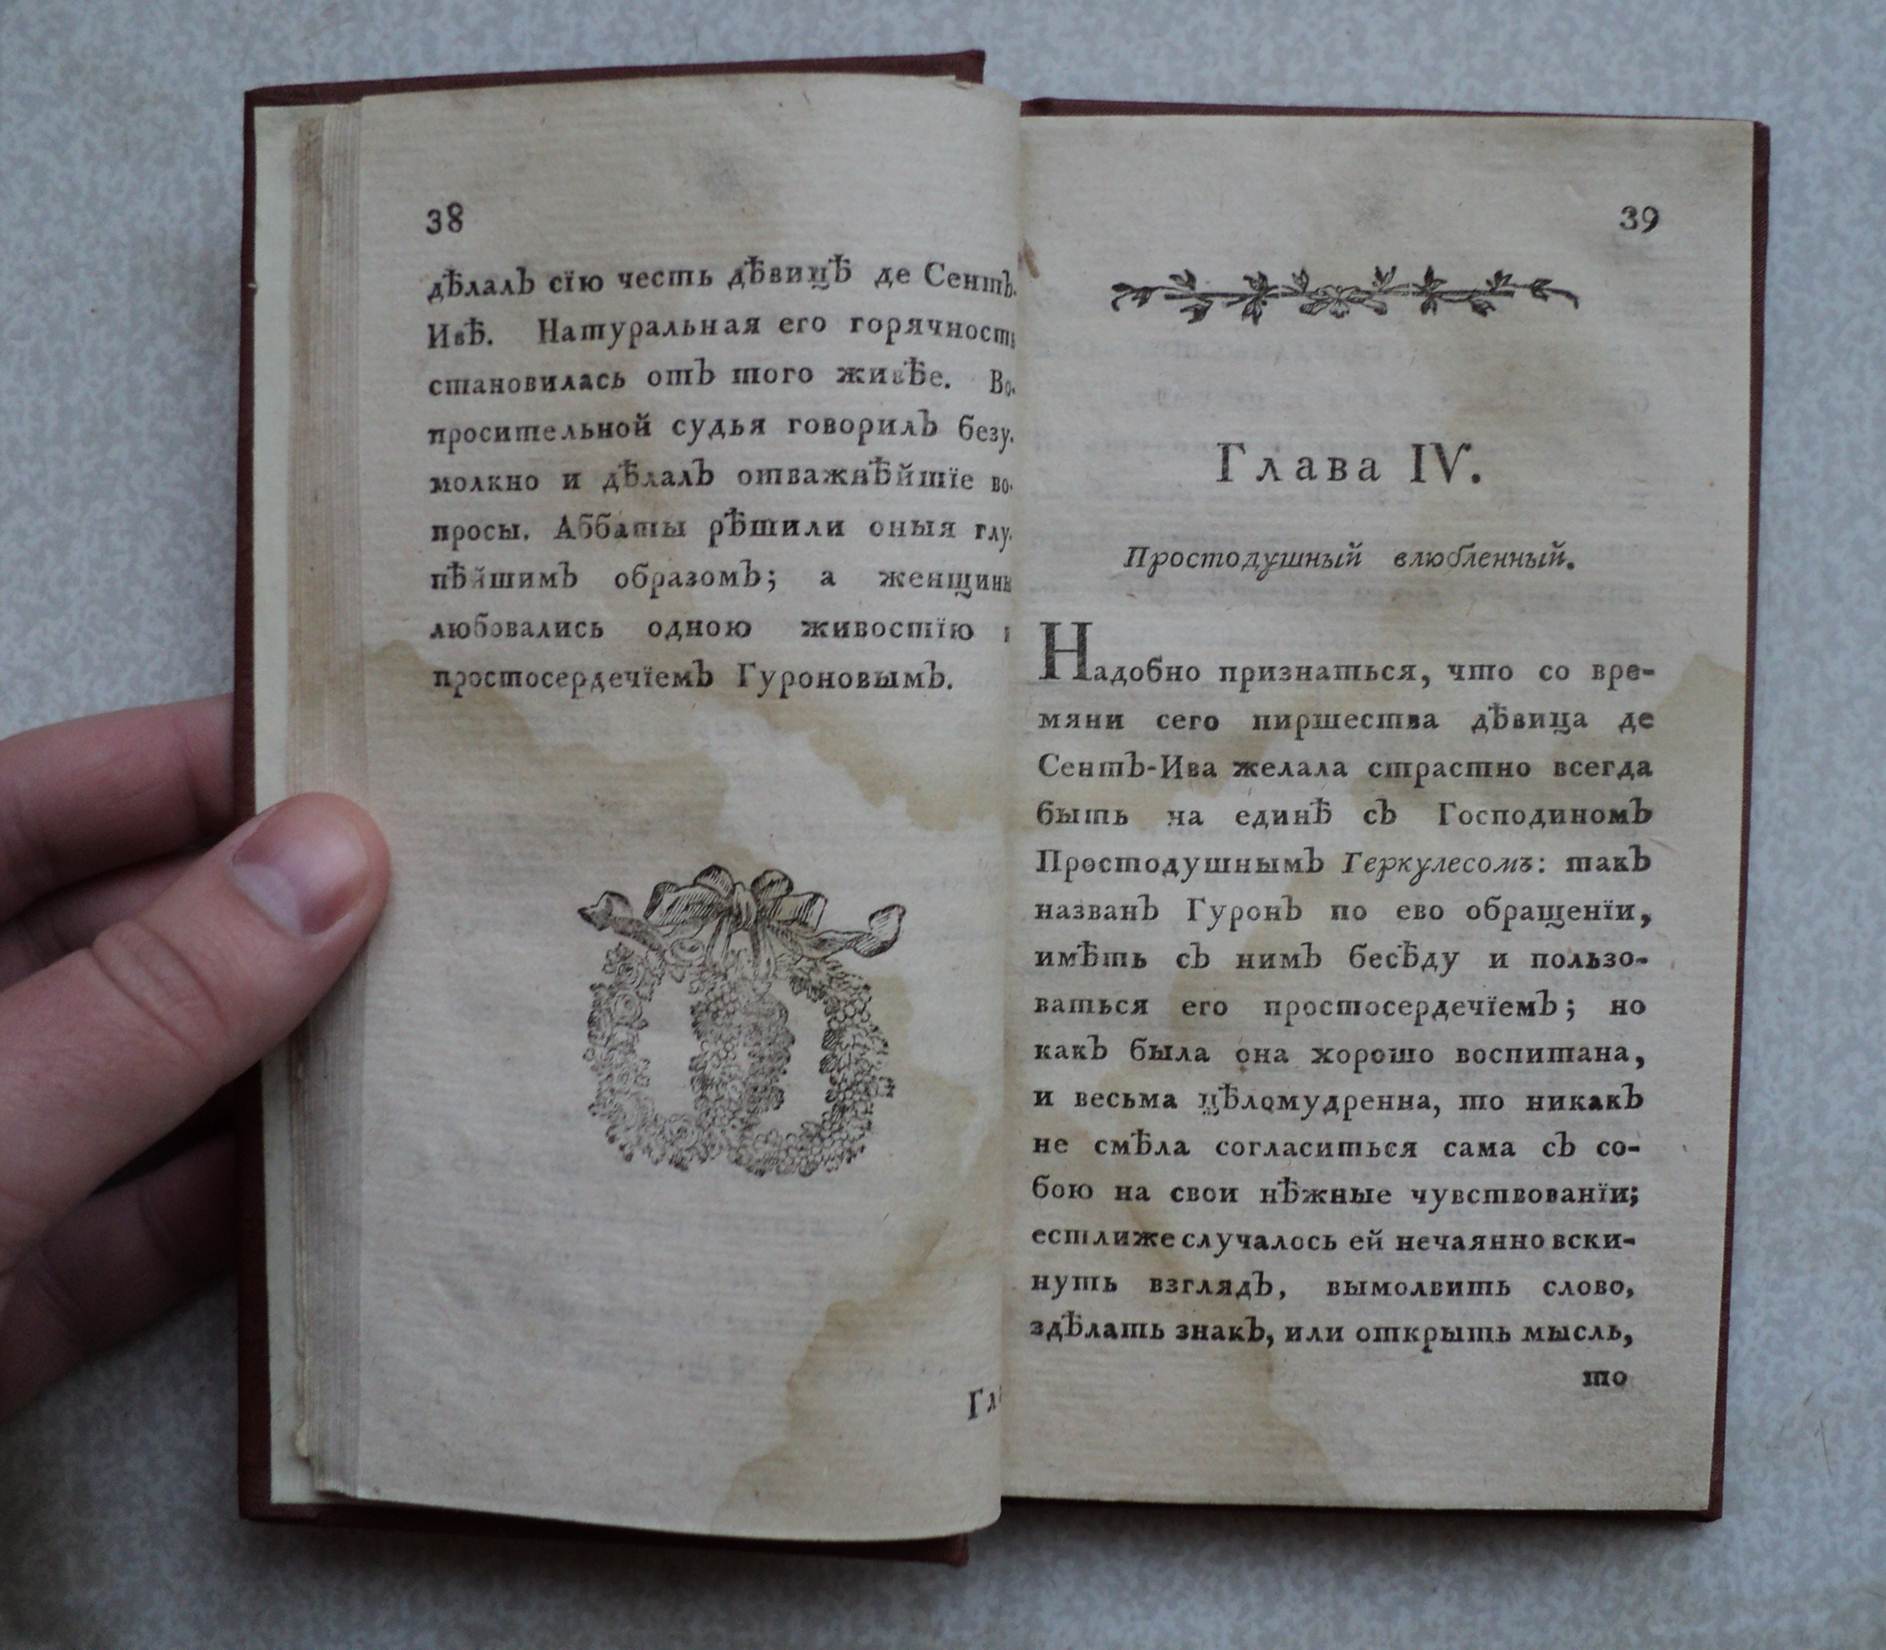 38
дѣлалъ сїю честь дѣвицѣ де Сентъ-
Ивѣ. Натуральная его горячность
становилась отъ того живѣе. Во-
просительной судья говорилъ безу-
молкно и дѣлалъ отважнѣйшїе во-
просы. Аббаты рѣшили оныя глу-
пѣйшимъ образомъ; а женщины
любовались одною живостїю
простосердечїемъ Гуроновымъ.
39
Глава IV.
Простодушный влюбленный.
Надобно признаться, что со вре-
мяни сего пиршества дѣвица де
Сентъ-Ива желала страстно всегда
быть на единѣ съ Господиномъ
Простодушнымъ Геркулесомъ: такъ
названъ Гуронъ по ево обращенїи,
имѣть съ нимъ бесѣду и пользо-
ваться его простосердечїемъ; но
какъ была она хорошо воспитана,
и весьма цѣломудренна, то никакъ
не смѣла согласиться сама съ со-
бою на свои нѣжные чувствованїи;
естлиже случалось ей нечаянно вски-
нуть взглядъ, вымолвить слово,
здѣлать знакъ, или открыть мысль,
то